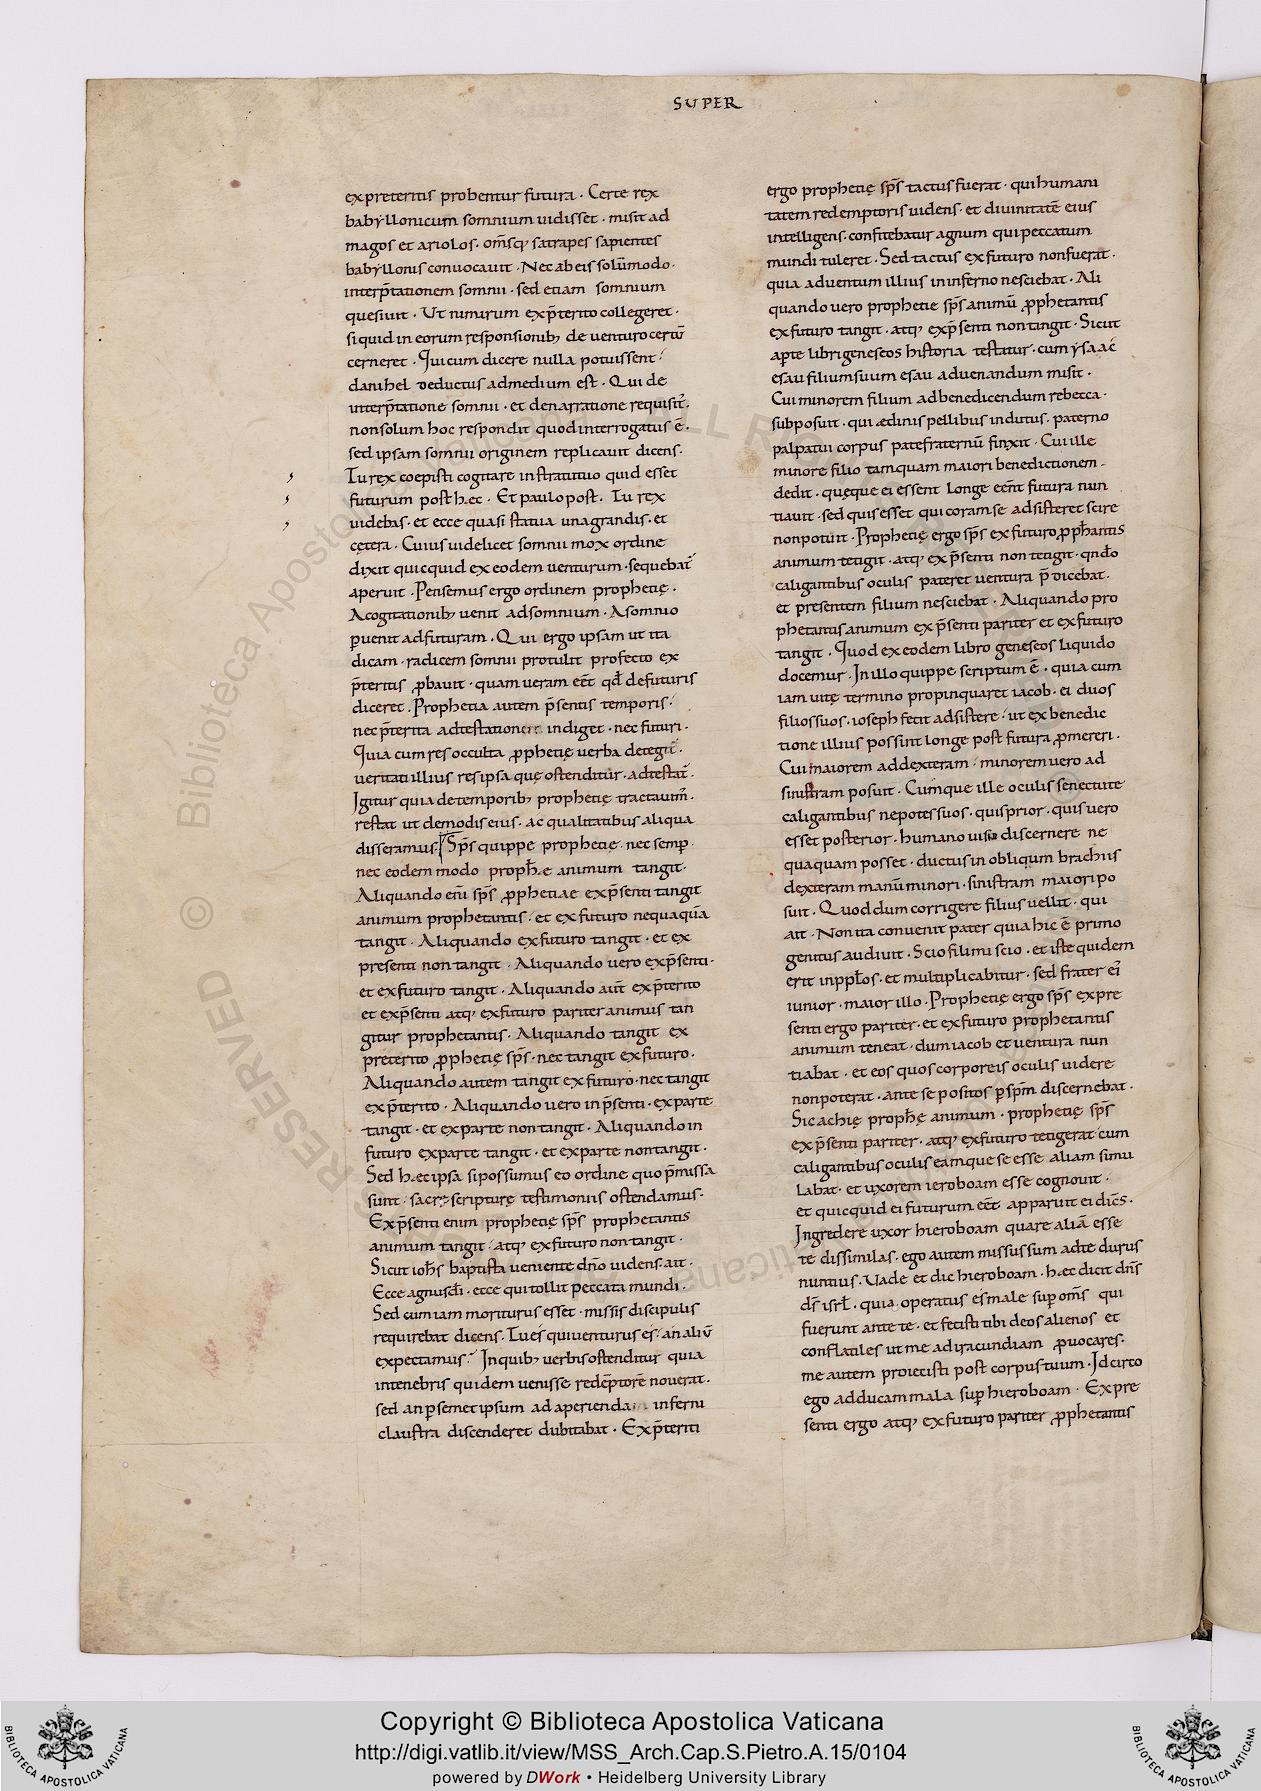 SUPER
ex preteritis probentur futura · Certe rex
babyllonicum somnium uidisset · misit ad
magos et ariolos · om̅sq; satrapes sapientes
babyllonis conuocauit · Nec ab eis solu̅modo ·
interp̅tationem somnii · sed etiam somnium
quesiuit · Ut nimirum ex p̅terito collegeret ·
si quid in eorum responsionib; de uenturo certu̅
cerneret · Qui cum dicere nulla potuissent ·
danihel deductus ad medium est · Qui de
interp̅tatione somnii · et de narratione requisit᷒ ·
non solum hoc respondit quod interrogatus e̅ ·
sed ipsam somnii originem replicauit dicens ·
Tu rex coepisti cogitare in stratu tuo quid esset
futurum post hęc · Et paulo post · Tu rex
uidebas · et ecce quasi statua una grandis · et
cętera · Cuius uidelicet somnii mox ordine
dixit quicquid ex eodem uenturum · sequebat᷒
aperuit · Pensemus ergo ordinem prophetię ·
A cogitationib; uenit ad somnium · A somnio
ꝑuenit ad futuram · Qui ergo ipsam ut ita
dicam · radicem somnii protulit profecto ex
p̅teritis ꝓbauit · quam ueram ee̅t qd̅ de futuris
diceret · Prophetia autem p̅sentis temporis ·
nec p̅terita adtestatione indiget · nec futuri ·
Quia cum res occulta ꝓphetię uerba detegit᷒ ·
ueritati illius res ipsa quę ostenditur · adtestat᷒ ·
Igitur quia de temporib; prophetię tractauim᷒ ·
restat ut de modis eius · ac qualitatibus aliqua
disseramus · Sp̅s quippe prophetię · nec semp̲ ·
nec eodem modo proph̅ę animum tangit ·
Aliquando eni̅ sp̅s ꝓphetiae ex p̅senti tangit
animum prophetantis · et ex futuro nequaqua̅
tangit · Aliquando ex futuro tangit · et ex
presenti non tangit · Aliquando uero ex p̅senti ·
et ex futuro tangit · Aliquando aut̅ ex p̅terito
et ex p̅senti atq; ex futuro pariter animus tan
gitur prophetantis · Aliquando tangit ex
preterito ꝓphetię sp̅s · nec tangit ex futuro ·
Aliquando autem tangit ex futuro · nec tangit
ex p̅terito · Aliquando uero in p̅senti · ex parte
tangit · et ex parte non tangit · Aliquando in
futuro ex parte tangit · et ex parte non tangit ·
Sed hęc ipsa si possumus eo ordine quo p̅missa
sunt · sacrę scripturę testimoniis ostendamus ·
Ex p̅senti enim prophetię sp̅s prophetantis
animum tangit · atq; ex futuro non tangit ·
Sicut ioh̅s baptista ueniente dn̅o uidens · ait ·
Ecce agnus di̅ · ecce qui tollit peccata mundi ·
Sed cum iam moriturus esset · missis discipulis
requirebat dicens · Tu es qui uenturus es · an aliu̅
expectamus · In quib; uerbis ostenditur quia
in tenebris quidem uenisse rede̅ptore̅ nouerat ·
sed an ꝑ semet ipsum ad aperienda inferni
claustra discenderet dubitabat · Ex p̅teriti
ergo prophetię sp̅s tactus fuerat · qui humani
tatem redemptoris uidens · et diuinitate̅ eius
intelligens · confitebatur agnum qui peccatum
mundi tuleret · Sed tactus ex futuro non fuerat ·
quia aduentum illius in inferno nesciebat · Ali
quando uero prophetie sp̅s animu̅ ꝓphetantis
ex futuro tangit · atq; ex p̅senti non tangit · Sicut
aꝑte libri geneseos historia testatur · cum ysaac
esau filium suum esau ad uenandum misit ·
Cui minorem filium ad benedicendum rebecca ·
subposuit · qui ædinis pellibus indutus · paterno
palpatui corpus pate fraternu̅ finxit · Cui ille
minore filio tamquam maiori benedictionem ·
dedit · quęque ei essent longe ee̅nt futura nun
tiauit · sed quis esset qui coram se adsisteret scire
non potuit · Prophetię ergo sp̅s ex futuro ꝓph̅antis
animum tetigit · atq; ex p̅senti non tetigit · qn̅do
caligantibus oculis pateret uentura p̅dicebat ·
et presentem filium nesciebat · Aliquando pro
phetantis animum ex p̅senti pariter et ex futuro
tangit · Quod ex eodem libro geneseos liquido
docemur · In illo quippe scriptum e̅ · quia cum
iam uitę termino propinquaret iacob · ei duos
filios suos · ioseph fecit adsistere · ut ex benedic
tione illius possint longe post futura ꝓmereri ·
Cui maiorem ad dexteram · minorem uero ad
sinistram posuit · Cumque ille oculis senectute
caligantibus nepotes suos · quis prior · quis uero
esset posterior · humano uisu discernere ne
quaquam posset · ductus in obliqum brachiis
dexteram manu̅ minori · sinistram maiori po
suit · Quod dum corrigere filius uellit · qui
ait · Non ita conuenit pater quia hic e̅ primo
genitus audiuit · Scio fili mi scio · et iste quidem
erit in ppl̅os · et multiplicabitur · sed frater ei᷒
iunior · maior illo · Prophetię ergo sp̅s ex pre
senti ergo pariter · et ex futuro prophetantis
animum teneat · dum iacob et uentura nun
tiabat · et eos quos corporeis oculis uidere
non poterat · ante se positos ꝑ sp̅m discernebat ·
Sic achię proph̅ę animum · prophetię sp̅s
ex p̅senti pariter · atq; ex futuro tetigerat cum
caligantibus oculis eamque se esse aliam simu
labat · et uxorem ieroboam esse cognouit ·
et quicquid ei futurum ee̅t apparuit ei dic̅s ·
Ingredere uxor hieroboam quare alia̅ esse
te dissimilas · ego autem missus sum ad te durus
nuntius · Uade et dic hieroboam · hęc dicit dn̅s
ds̅ isrl̅ · quia operatus es male suꝑ om̅s qui
fuerunt ante te · et fecisti tibi deos alienos et
conflatiles ut me ad iracundiam ꝓuocares ·
me autem proiecisti post corpus tuum · Idcirco
ego adducam mala suꝑ hieroboam · Ex pre
senti ergo atq; ex futuro pariter ꝓphetantis
Copyright © Biblioteca Apostolica Vaticana
http://digi.vatlib.it/view/MSS_Arch.Cap.S.Pietro.A.15/0104
powered by DWork • Heidelberg University Library
BIBLIOTECA APOSTOLICA VATICANA
BIBLIOTECA APOSTOLICA VATICANA